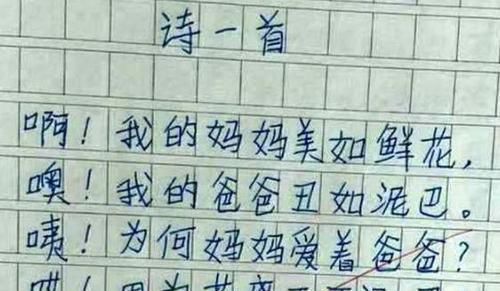 诗一首
啊！我的妈妈美如鲜花，
噢！我的爸爸丑如泥巴。
咦！为何妈妈爱着爸爸？